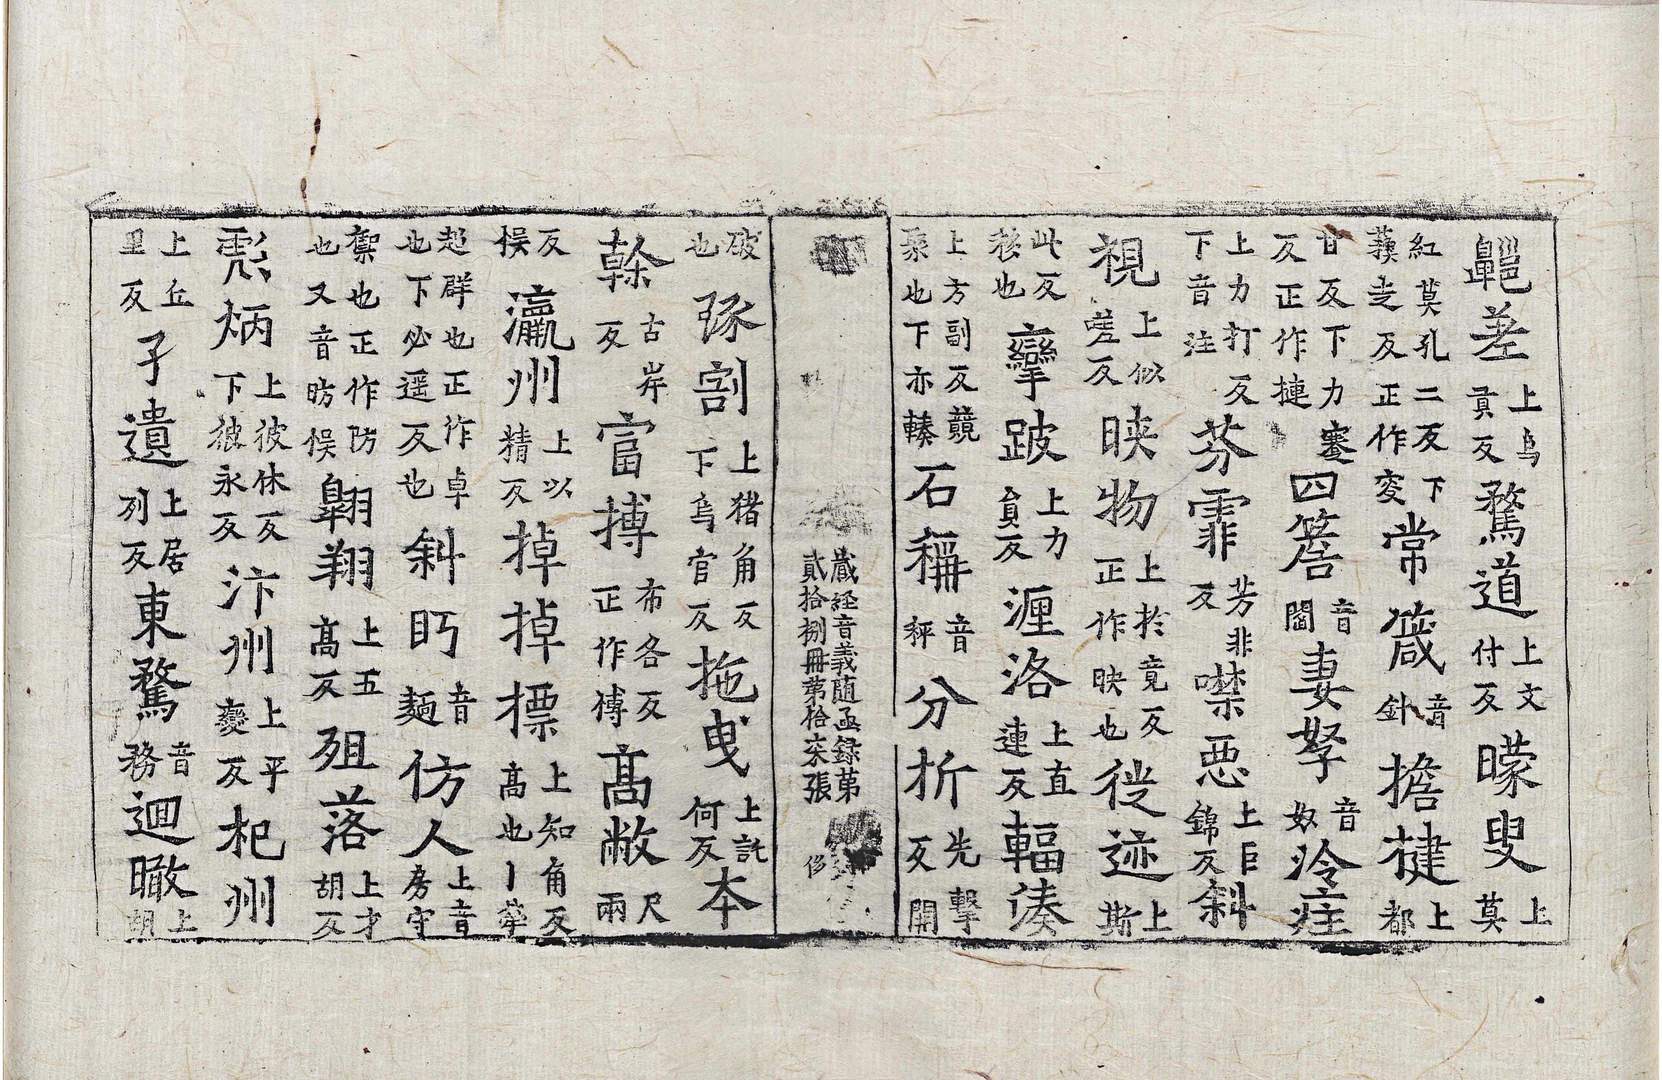 差上烏貢反騖道上文付反曚叟上莫
紅莫孔二反下走反正作变常箴音針擔揵上都
甘反下力蹇反正作揵四簷音閻妻孥音奴冷疰
上力打反下音注芬霏芳非反噤恶上巨錦反斜
視上似嗟反映物上於竟反正作映也徙迹上斯
此反移也攣跛上力員反湹洛上直連反輻湊
上方副反競聚也下亦輳石稱音秤分折先擊反開
藏経音義随函録第貳拾捌冊第拾柒張 侈
破也琢割上猪角反下烏官反拖曳上託何反本
榦古岸反富搏布各反正作博髙敞尺兩
反悮瀛州上以精反掉掉標上知角反高也丨犖
超群也正作卓也下必遥反也斜眄音麺仿人上音房守
禦也正作防也又音昉悮翺翔上五高反殂落上才胡反
彪炳上彼休反下彼永反汴州上平變反杞州
上丘里反孑遺上居列反東騖音務迴瞰上胡